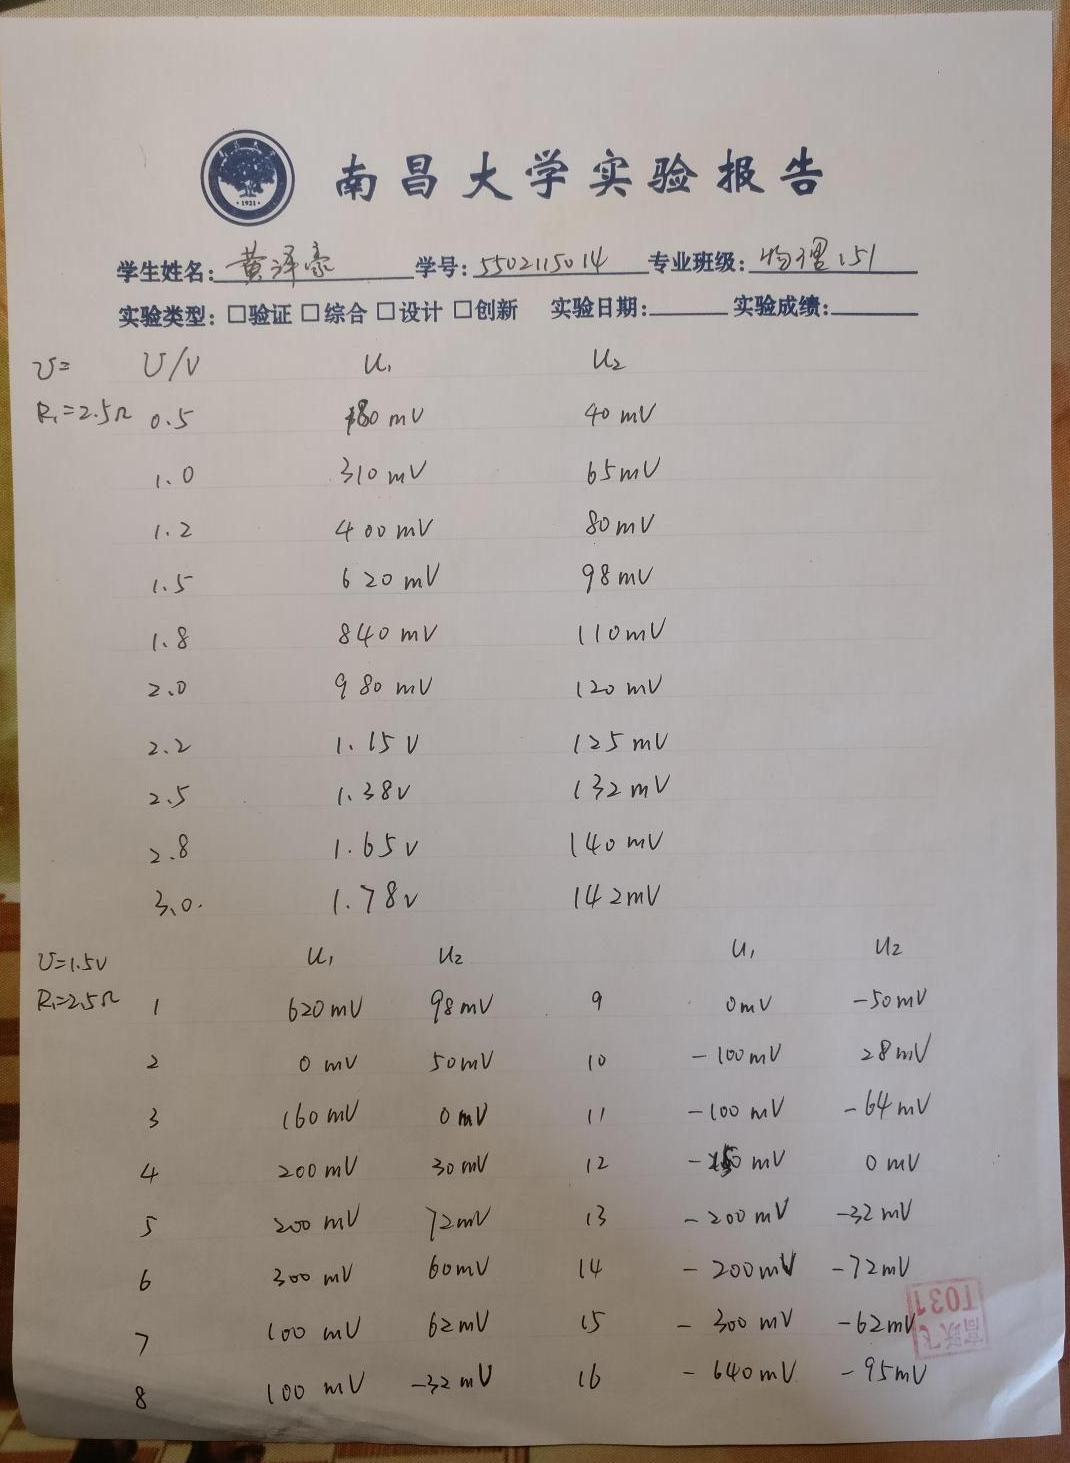 1921
南昌大学实验报告
学生姓名: 黄泽豪 学号: 5502115014 专业班级: 物理151
实验类型: □验证 □综合 □设计 □创新 实验日期: 实验成绩:
U= U/V U₁ U₂
R₁=2.5Ω 0.5 180 mV 40 mV
1.0 310 mV 65 mV
1.2 400 mV 80 mV
1.5 620 mV 98 mV
1.8 840 mV 110 mV
2.0 980 mV 120 mV
2.2 1.15 V 125 mV
2.5 1.38 V 132 mV
2.8 1.65 V 140 mV
3.0. 1.78 V 142 mV
U=1.5V U₁ U₂ U₁ U₂
R₁=2.5Ω 1 620 mV 98 mV 9 0 mV -50 mV
2 0 mV 50 mV 10 -100 mV 28 mV
3 160 mV 0 mV 11 -100 mV -64 mV
4 200 mV 30 mV 12 mV 0 mV
5 200 mV 72 mV 13 -200 mV -32 mV
6 300 mV 60 mV 14 -200 mV -72 mV
7 100 mV 62 mV 15 -300 mV -62 mV
8 100 mV -32 mV 16 -640 mV -95 mV
T031